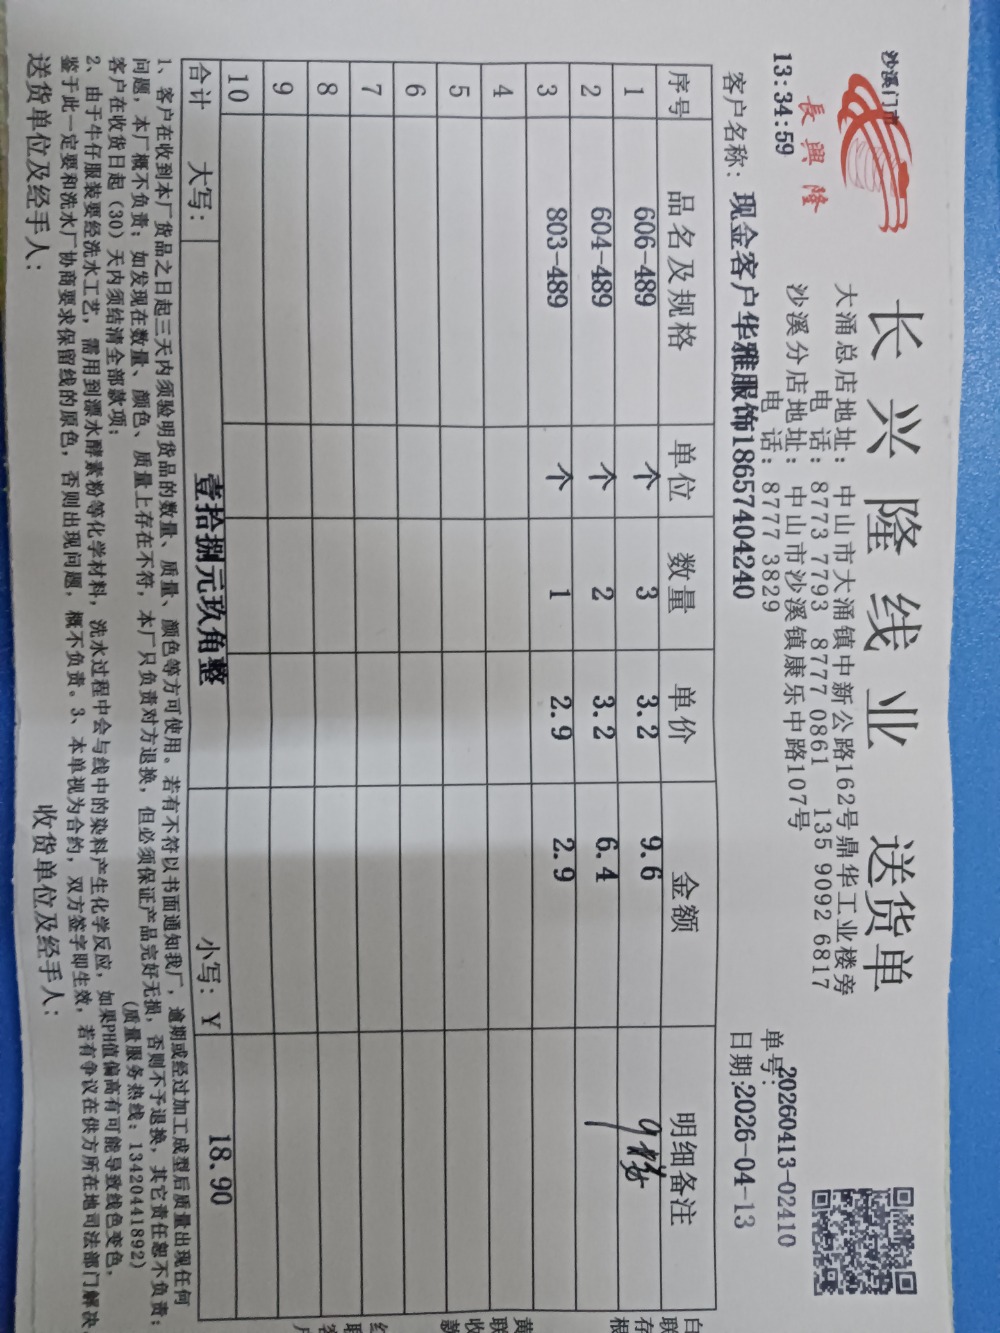 沙溪门市
長興隆
13:34:59
长兴隆线业 送货单
大涌总店地址: 中山市大涌镇中新公路162号鼎华工业楼旁
电 话: 8773 7793 8777 0861 135 9092 6817
沙溪分店地址: 中山市沙溪镇康乐中路107号
电 话: 8777 3829
单号: 20260413-02410
客户名称: 现金客户华雅服饰18657404240
日期:2026-04-13
序号 品名及规格 单位 数量 单价 金额 明细备注
1 606-489 个 3 3.2 9.6
2 604-489 个 2 3.2 6.4
3 803-489 个 1 2.9 2.9
4
5
6
7
8
9
10
合计 大写: 壹拾捌元玖角整 小写: ¥ 18.90
1、客户在收到本厂货品之日起三天内须验明货品的数量、质量、颜色等方可使用。若有不符以书面通知我厂，逾期或经过加工成型后质量出现任何
问题，本厂概不负责；如发现在数量、颜色、质量上存在不符，本厂只负责对方退换，但必须保证产品完好无损，否则不予退换，其它责任恕不负责；
客户在收货日起（30）天内须结清全部款项； (质量服务热线: 13420441892)
2、由于牛仔服装要经洗水工艺，需用到漂水酵素粉等化学材料，洗水过程中会与线中的染料产生化学反应，如果PH值偏高有可能导致线色变色，
鉴于此一定要和洗水厂协商要求保留线的原色，否则出现问题，概不负责。3、本单视为合约，双方签字即生效，若有争议在供方所在地司法部门解决
送货单位及经手人: 收货单位及经手人: